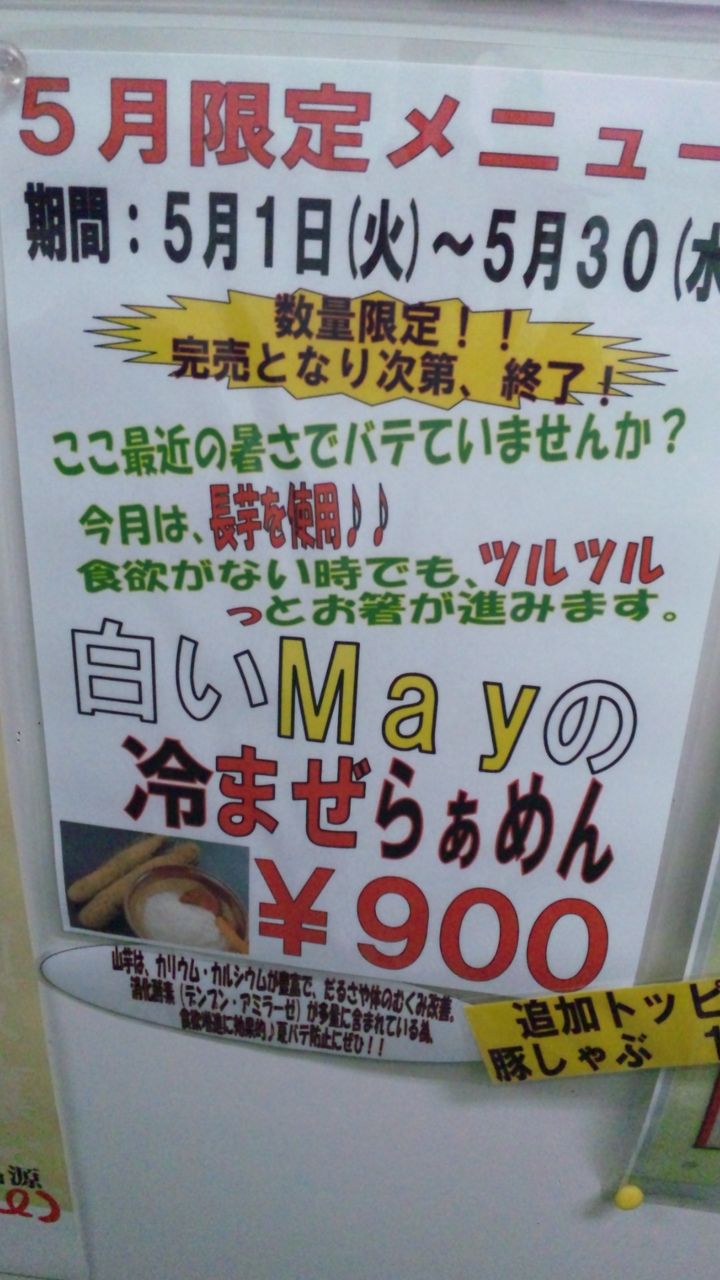 5月限定メニュー
期間：5月1日(火)～5月30(水
数量限定！！
完売となり次第、終了！
ここ最近の暑さでバテていませんか？
今月は、長芋を使用♪♪
食欲がない時でも、ツルツル
っとお箸が進みます。
白いMayの
冷まぜらぁめん
￥900
山芋は、カリウム・カルシウムが豊富で、だるさや体のむくみ改善。
消化酵素（デンプン・アミラーゼ）が多量に含まれている為、
食欲増進に効果的♪夏バテ防止にぜひ！！
追加トッピ
豚しゃぶ 1
源